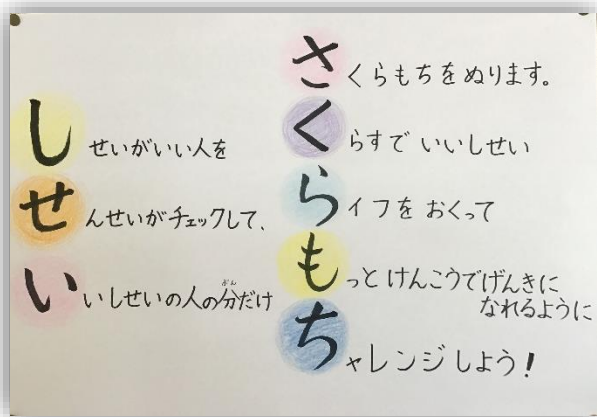 しせいがいい人を
せんせいがチェックして、
ぶん
いいしせいの人の分だけ
さくらもちをぬります。
くらすで いいしせい
らイフを おくって
もっと けんこうでげんきに
なれるように
ちャレンジしよう!